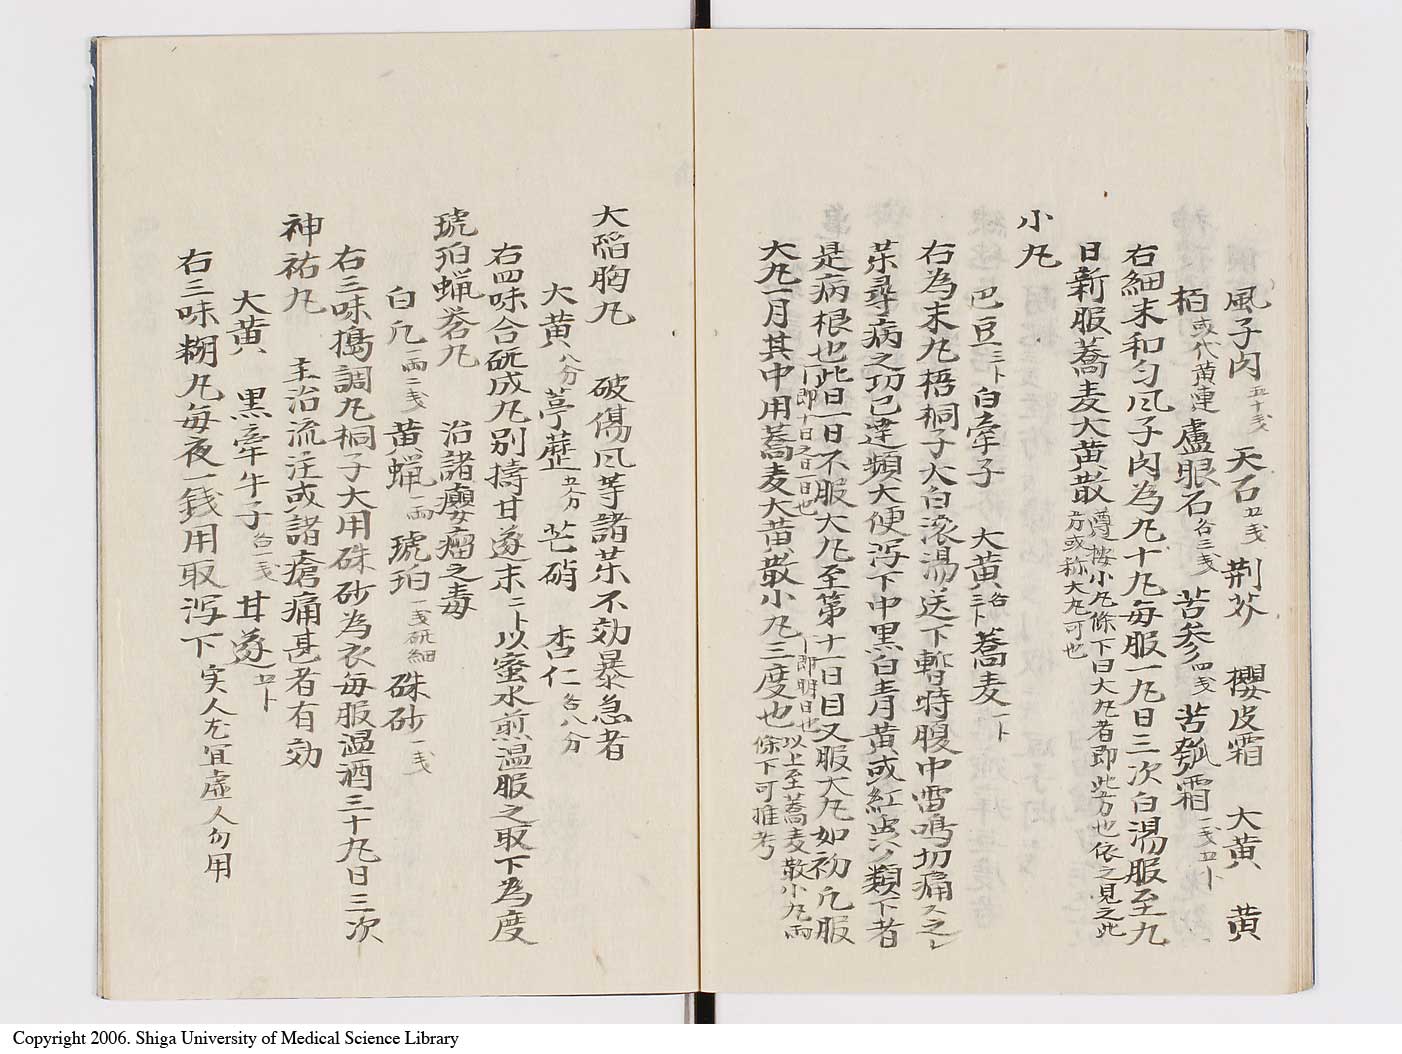 風子肉五十戔 天石廿戔 荆芥 櫻皮霜 大黄 黄
栢或代黄連 盧眼石各三戔 苦参四戔 苦瓠霜一戔五卜
右細末和匀風子肉為丸十丸每服一丸日三次白湯服至九
日新服蕎麦大黄散遵按小丸條下曰大丸者即此方也依之見之此方或称大丸可也
小丸
巴豆三卜 白牽子 大黄各三卜 蕎麦一卜
右為末丸梧桐子大白滾湯送下暫時腹中雷鳴切痛久之
茱尋病之功已達頻大便泻下中黒白青黄或紅虫分類下者
是病根也此日一日不服大丸至第十一日目又服大丸如初凡服
即十日之日日也
大丸一月其中用蕎麦大黄散小丸三度也以上至蕎麦散小丸兩條下可推考
即明日也
大陷胸丸 破傷風等諸茱不効暴急者
大黄八分 葶藶五分 芒硝 杏仁各八分
右四味合硫成丸別擣甘遂末二卜以蜜水煎温服之取下為度
琥珀蝋礬丸 治諸癰瘤之毒
白凡一兩二戔 黄蝋一兩 琥珀一戔研細 硃砂一戔
右三味搗調丸桐子大用硃砂為衣每服温酒三十丸日三次
神祐丸 主治流注或諸瘡痛甚者有効
大黄 黒牽牛子各一戔 甘遂五卜
右三味糊丸每夜一錢用取泻下実人尤宜虚人勿用
Copyright 2006. Shiga University of Medical Science Library